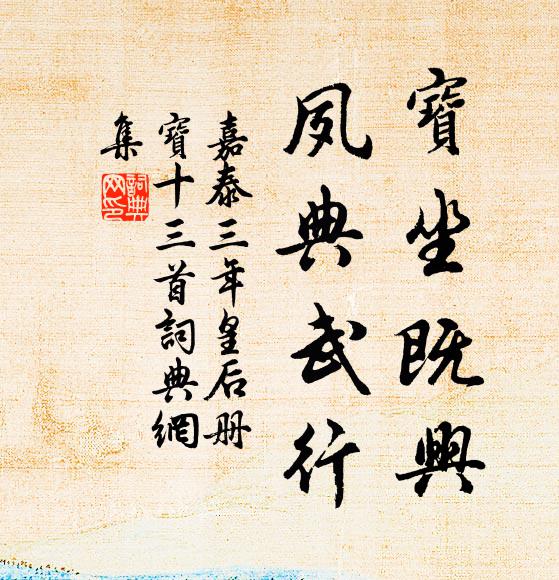 寶坐既興
夙典武行
嘉泰三年皇后册
寶十三首詞典網
集
詞典網印